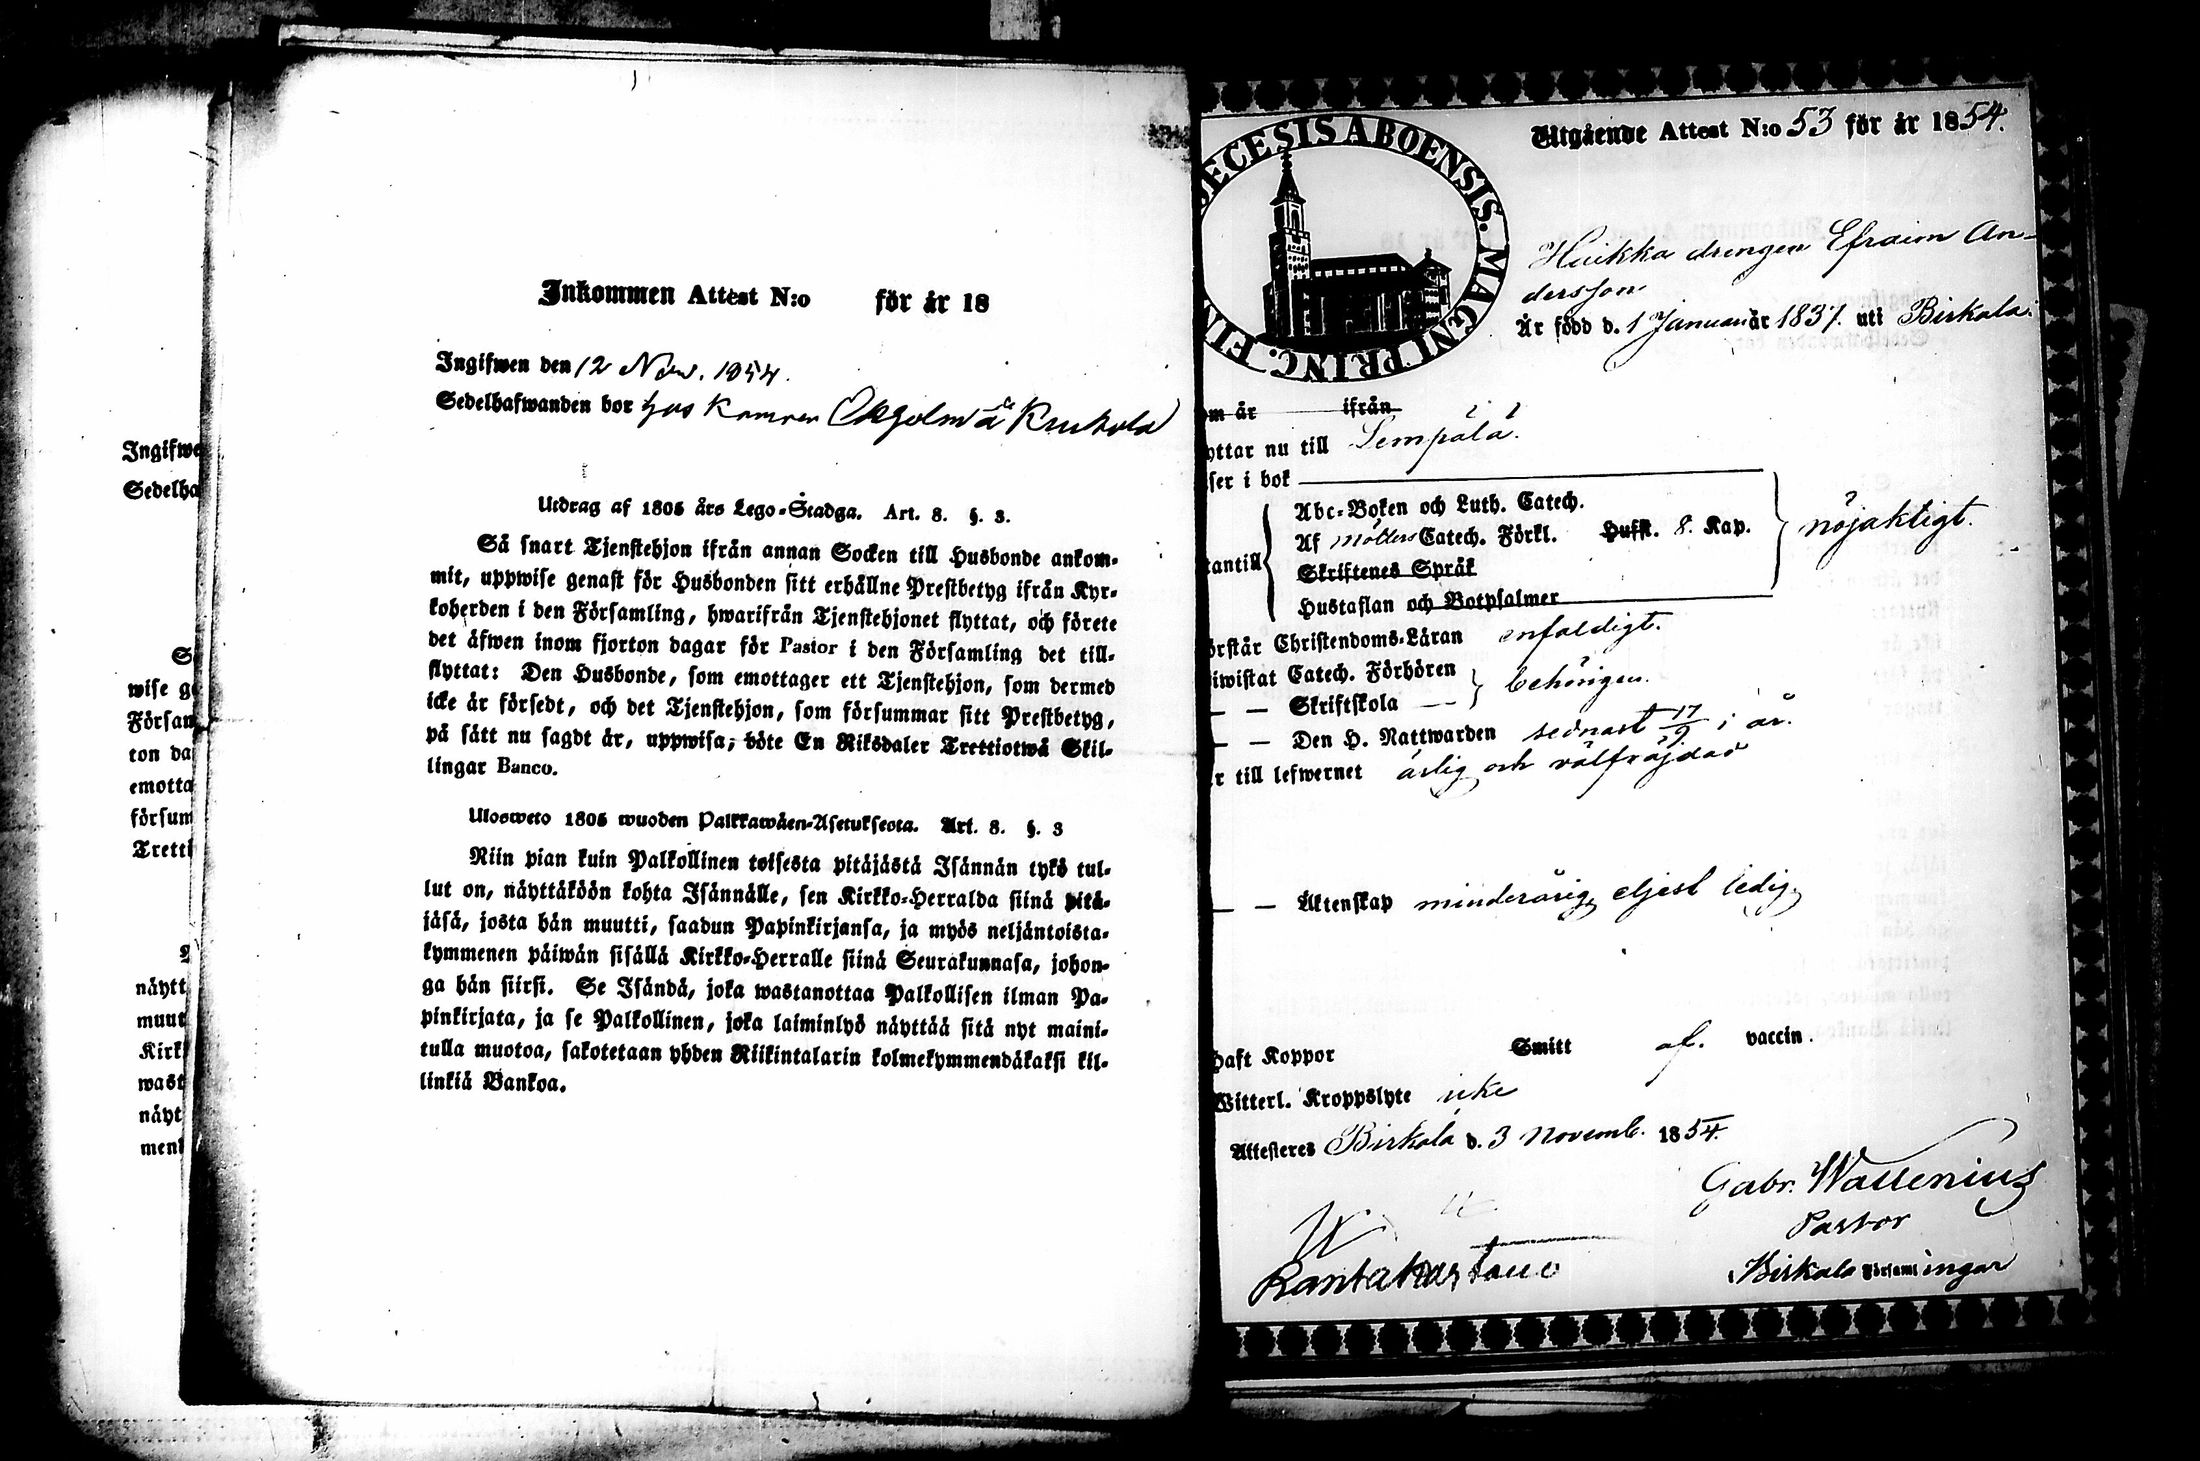 Ingifwe
Sedelha
wise ge
Försam
ton da
emotta
försum
Tretti
näytt
muut
Kirk
wast
näyt
men
Inkommen Attest N:o för år 18
Ingifwen den 12 Nov. 1854.
Sedelhafwanden bor hos
Utdrag af 1805 års Lego-Stadga. Art. 8. §. 3.
Så snart Tjenstehjon ifrån annan Socken till Husbonde ankom-
mit, uppwise genast för Husbonden sitt erhållne Prestbetyg ifrån Kyr-
koherden i den Församling, hwarifrån Tjenstehjonet flyttat, och förete
det äfwen inom fjorton dagar för Pastor i den Församling det till-
flyttat: Den Husbonde, som emottager ett Tjenstehjon, som dermed
icke är försedt, och det Tjenstehjon, som försummar sitt Prestbetyg,
på sätt nu sagdt är, uppwisa, böte En Riksdaler Trettiotwå Skil-
lingar Banco.
Ulosweto 1805 wuoden Palkkawäen-Asetuksesta. Art. 8. §. 3
Niin pian kuin Palkollinen toisesta pitäjästä Isännän tykö tul-
lut on, näyttäköön kohta Isännälle, sen Kirkko-Herralda siinä pitä-
jäsä, josta hän muutti, saadun Papinkirjansa, ja myös neljäntoista-
kymmenen päiwän sisällä Kirkko-Herralle siinä Seurakunnasa, johon-
ga hän siirsi. Se Isändä, joka wastanottaa Palkollisen ilman Pa-
pinkirjata, ja se Palkollinen, joka laiminlyö näyttää sitä nyt maini-
tulla muotoa, sakotetaan yhden Riikintalarin kolmekymmendäkaksi kil-
linkiä Bankoa.
ECESIS ABOENSIS. MAGNI PRINC. FIN
Utgående Attest N:o 53 för år 1854.
Huikka drengen Efraim An-
dersson
Är född d. 1 Januari är 1837. uti Birkala.
om år ifrån
yttar nu till Lempälä.
ser i bok
tantill
Abc-Boken och Luth. Catech.
Af Möllers Catech. Förkl. Husst. 8. Kap.
Skriftenes Språk
Hustaflan och Botpsalmer
nöjaktigt.
örstår Christendoms-Läran enfaldigt.
iwistat Catech. Förhören
— — Skriftskola —
behörigen.
— — Den H. Nattwarden sednast 17/9 i år.
r till lefwernet ärlig och välfräjdad
— — Äktenskap minderårig, eljest ledig.
haft Koppor Smitt af. vaccin.
Witterl. Kroppslyte icke
Attesteres Birkala d. 3 Novemb. 1854.
Gabr. Wallenius
Pastor
Birkala Församlingar